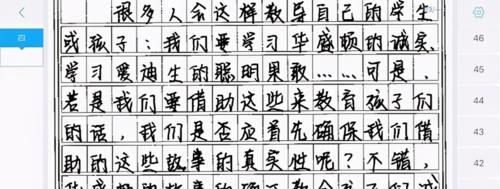 很多人会这样教导自己的学生
或孩子：我们要学习华盛顿的诚实，
学习爱迪生的聪明果敢……可是，
若是我们要借助这些来教育孩子们
的话，我们是否应首先确保我们借
助的这些故事的真实性呢？不错，
四
46
45
44
43
42